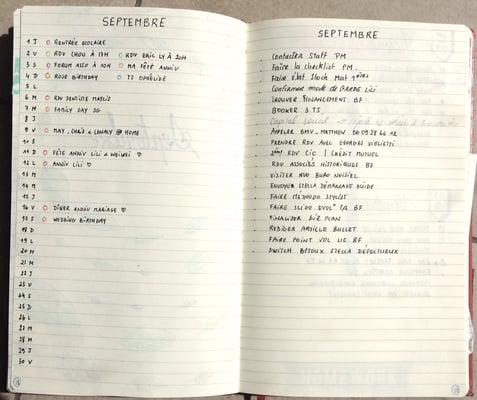 SEPTEMBRE
1 J RENTRÉE SCOLAIRE
2 V RDV CHOU À 18H RDV ERIC LY À 20H
3 S FORUM ASSO À 10H MA FÊTE ANNIV
4 D ROSE BIRTHDAY TS
5 L
6 M RDV DENTISTE MAYLIS
7 M FAMILY DAY SG
8 J
9 V MAY, CHRIS & @ HOME
10 S
11 D FÊTE ANNIV LILI &
12 L ANNIV LILI
13 M
14 M
15 J
16 V DÎNER ANNIV MARIAGE
17 S WEDDING BIRTHDAY
18 D
19 L
20 M
21 M
22 J
23 V
24 S
25 D
26 L
27 M
28 M
29 J
30 V
SEPTEMBRE
Contacter Staff PM
Faire la checklist PM
Faire État Stock Mat 1ères
Confirmer mode de GARDE LILI
TROUVER FINANCEMENT BF
BOOKER S TS
Capital Social
APPELER BMV. MATTHEW 06 09 28 66 12
PRENDRE RDV AVEC GEORGES
2ème RDV CIC | CRÉDIT MUTUEL
RDV ASSOCIÉS HISTORIQUES BF
VISITER NVO BURO NOISIEL
ENVOYER STELLA DÉMARRAGE GUIDE
FAIRE MÉTHODO STYLIST
FAIRE SLIDE EVOL° CA BF
FINALISER BIZ PLAN
REDIGER ARTICLE BULLET
FAIRE POINT VOL US BF
SWITCH BIJOUX STELLA DÉFECTUEUX